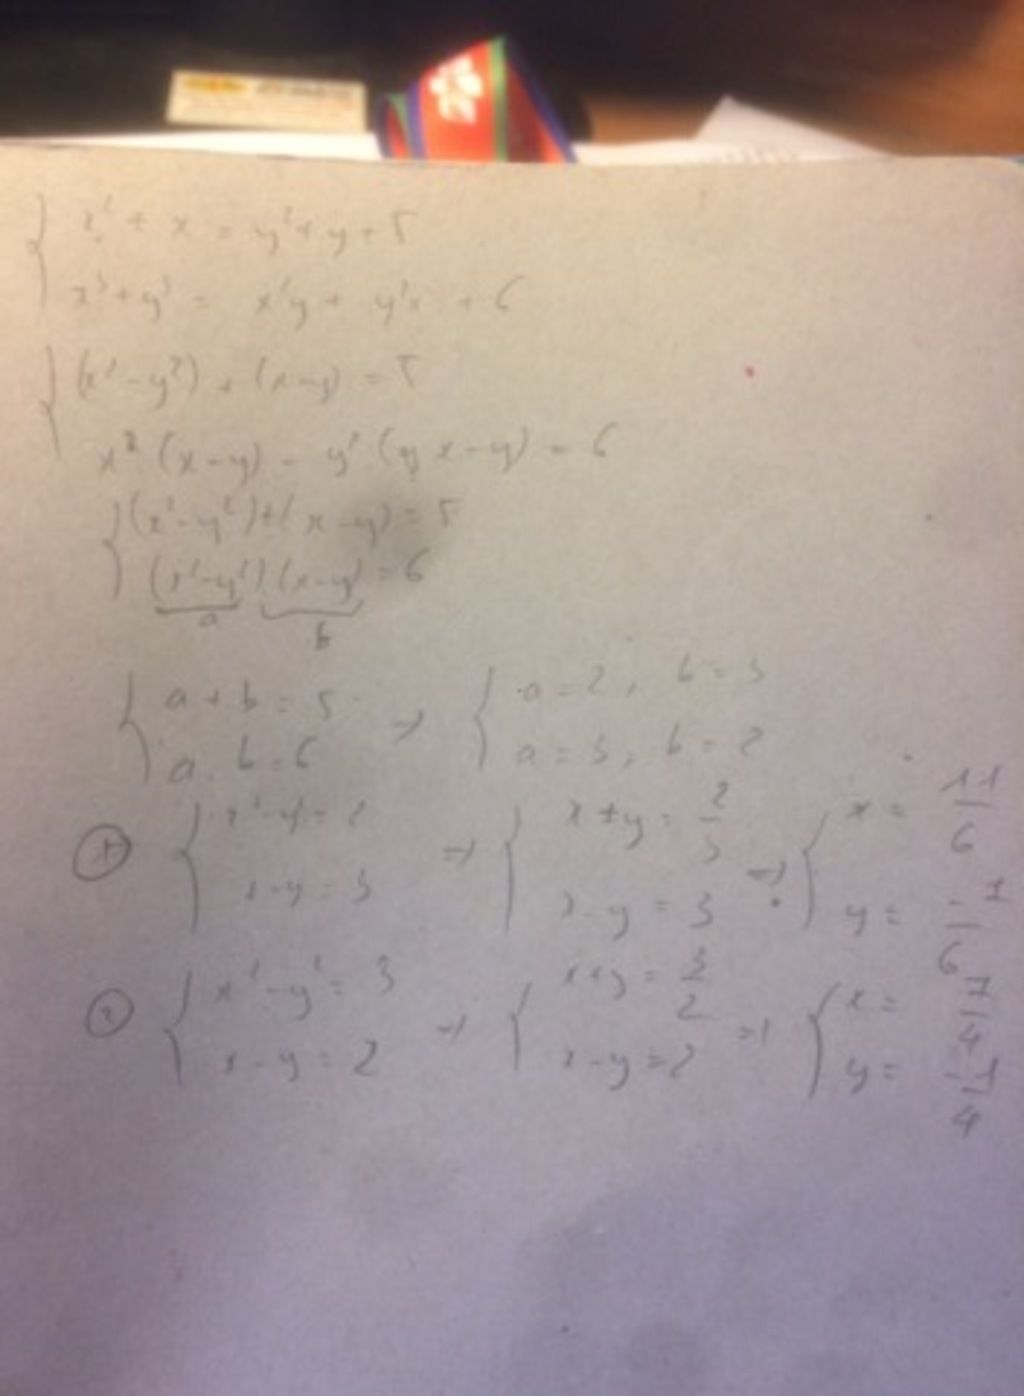 { x² + x = y² + y + 5
x³ + y³ = x²y + y²x + 6
{ (x² - y²) + (x - y) = 5
x² (x - y) - y² (y x - y) = 6
{ (x² - y²) + (x - y) = 5
(x² - y²) (x - y) = 6
a b
{ a + b = 5 => { a = 2, b = 3
a . b = 6 a = 3, b = 2
① { x² - y² = 2 => { x + y = 2/3 => { x = 11/6
x - y = 3 x - y = 3 y = -7/6
② { x² - y² = 3 => { x + y = 3/2 => { x = 7/4
x - y = 2 x - y = 2 y = -1/4